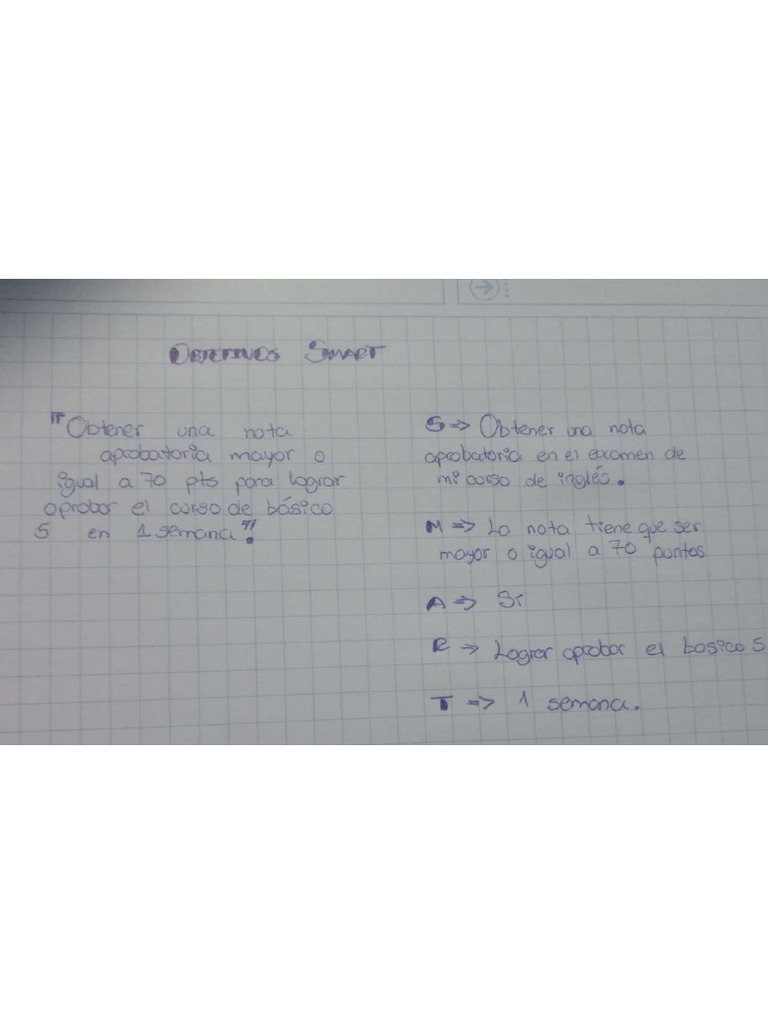 Objetivos Smart
"Obtener una nota
aprobatoria mayor o
igual a 70 pts para lograr
aprobar el curso de básico
5 en 1 semana".
S => Obtener una nota
aprobatoria en el examen de
mi curso de inglés.
M => La nota tiene que ser
mayor o igual a 70 puntos
A => Sí
R => Lograr aprobar el basico 5
T => 1 semana.